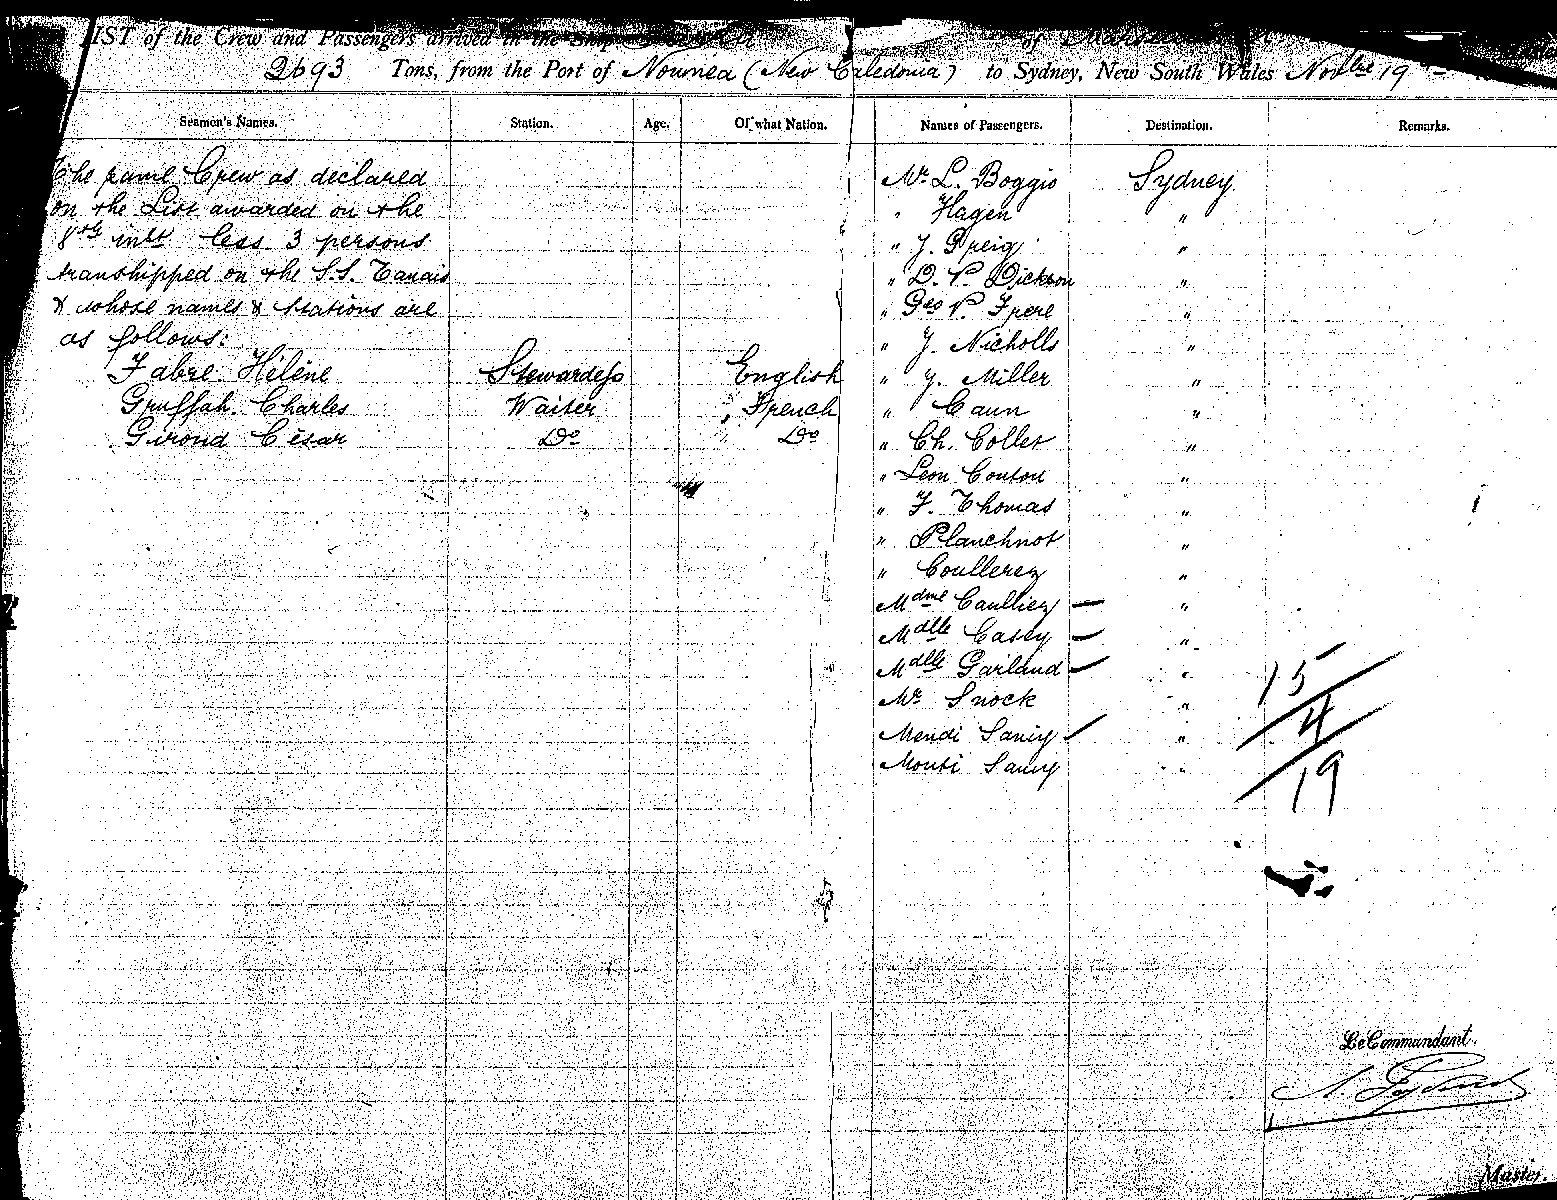 LIST of the Crew and Passengers arrived in the Ship of
2693 Tons, from the Port of Noumea (New Caledonia) to Sydney, New South Wales Novbre 19
Seamen's Names. Station. Age. Of what Nation. Names of Passengers. Destination. Remarks.
The same Crew as declared
on the List awarded on the
8th inst less 3 persons
transhipped on the S.S. Tanais
& whose names & stations are
as follows:
Fabre Hélène Stewardess English
Gruffah Charles Waiter French
Girond César Do Do
Mr L. Boggio Sydney
" Hagen "
" J. Greig "
" D. P. Dickson "
" Geo P. Frere "
" J. Nicholls "
" J. Miller "
" Caun "
" Ch. Collet "
" Leon Couton "
" F. Thomas "
" Planchnot "
" Coullerez "
Mdme Caulliez "
Mdlle Casey "
Mdlle Garland "
Mr Snock "
Mendi Samy "
Mouti Samy "
15
4
19
Le Commandant.
Master.